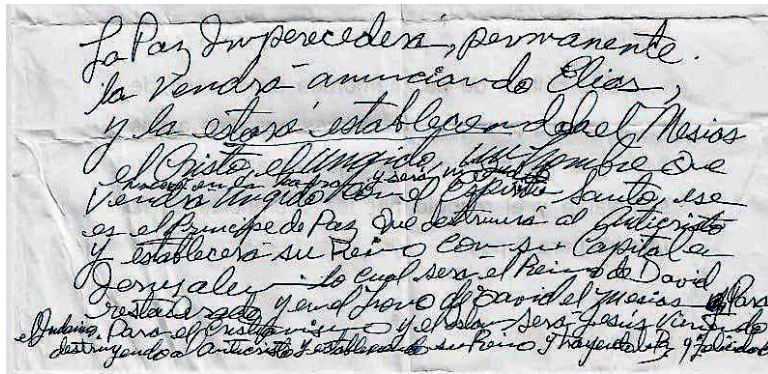 La Paz Imperecedera, permanente.
la Vendrá anunciando Elías,
y la estará estableciendola el Mesías
el Cristo, el Ungido, un hombre que
y será
Vendrá Ungido con el Espíritu Santo, ese
es el Príncipe de Paz que destruirá al Anticristo
y establecerá su Reino con su Capital en
Jerusalen lo cual será el Reino de David
restaurado y en el Trono de David el Mesías Para
el Judaismo, Para el Cristianismo y el Islam será Jesús Viniendo
destruyendo al anticristo y estableciendo su Reino y trayendo la Paz y felicidad